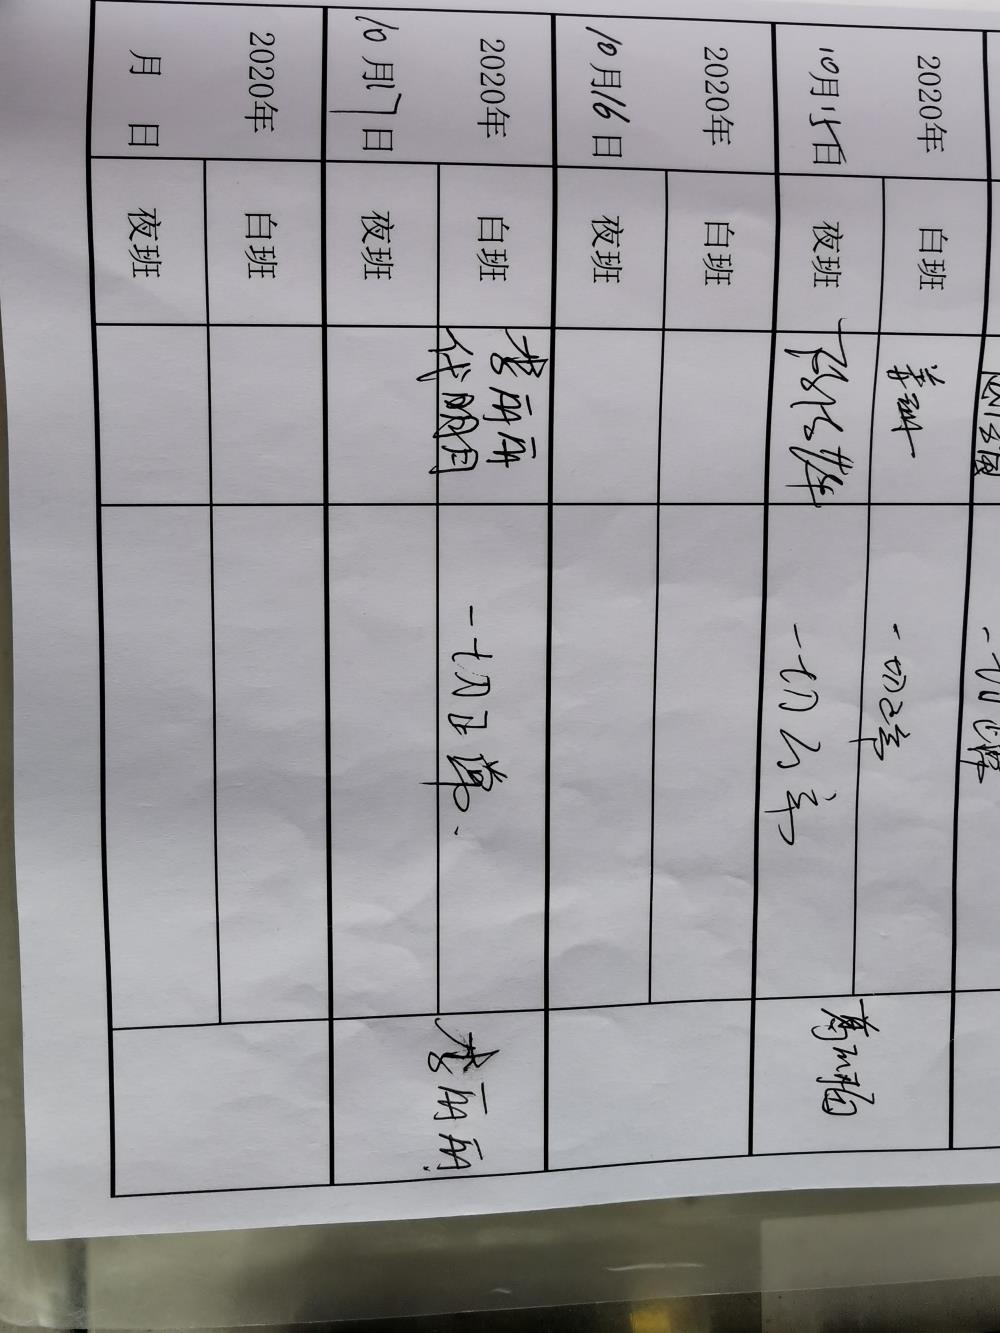 2020年
10月15日
白班
一切正常
夜班
一切正常
2020年
10月16日
白班
夜班
2020年
10月17日
白班
李丽丽
代明月
一切正常.
夜班
李丽丽
2020年
月 日
白班
夜班